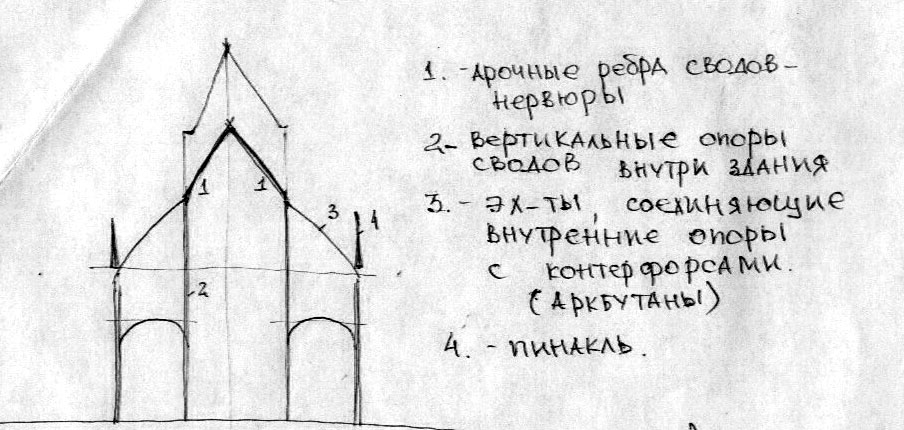 1. - Арочные ребра сводов -
нервюры
2 - Вертикальные опоры
сводов внутри здания
3. - Эл-ты, соединяющие
внутренние опоры
с контерфорсами.
(Аркбутаны)
4. - пинакль.
1 1 3 4
2